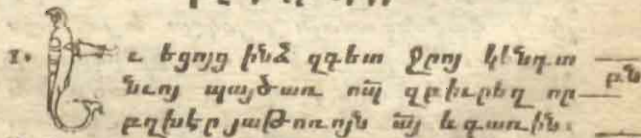 1. Եւ եցոյց ինձ զգետ ջրոյ կենդա
նւոյ պայծառ որպ զբիւրեղ որ բն
բղխէր յաթոռոյն այ և գառին։